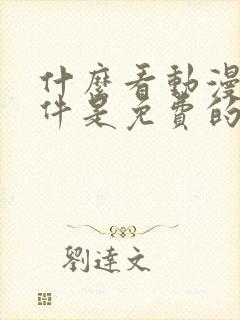 什麼看動漫
件是免費的
劉達文